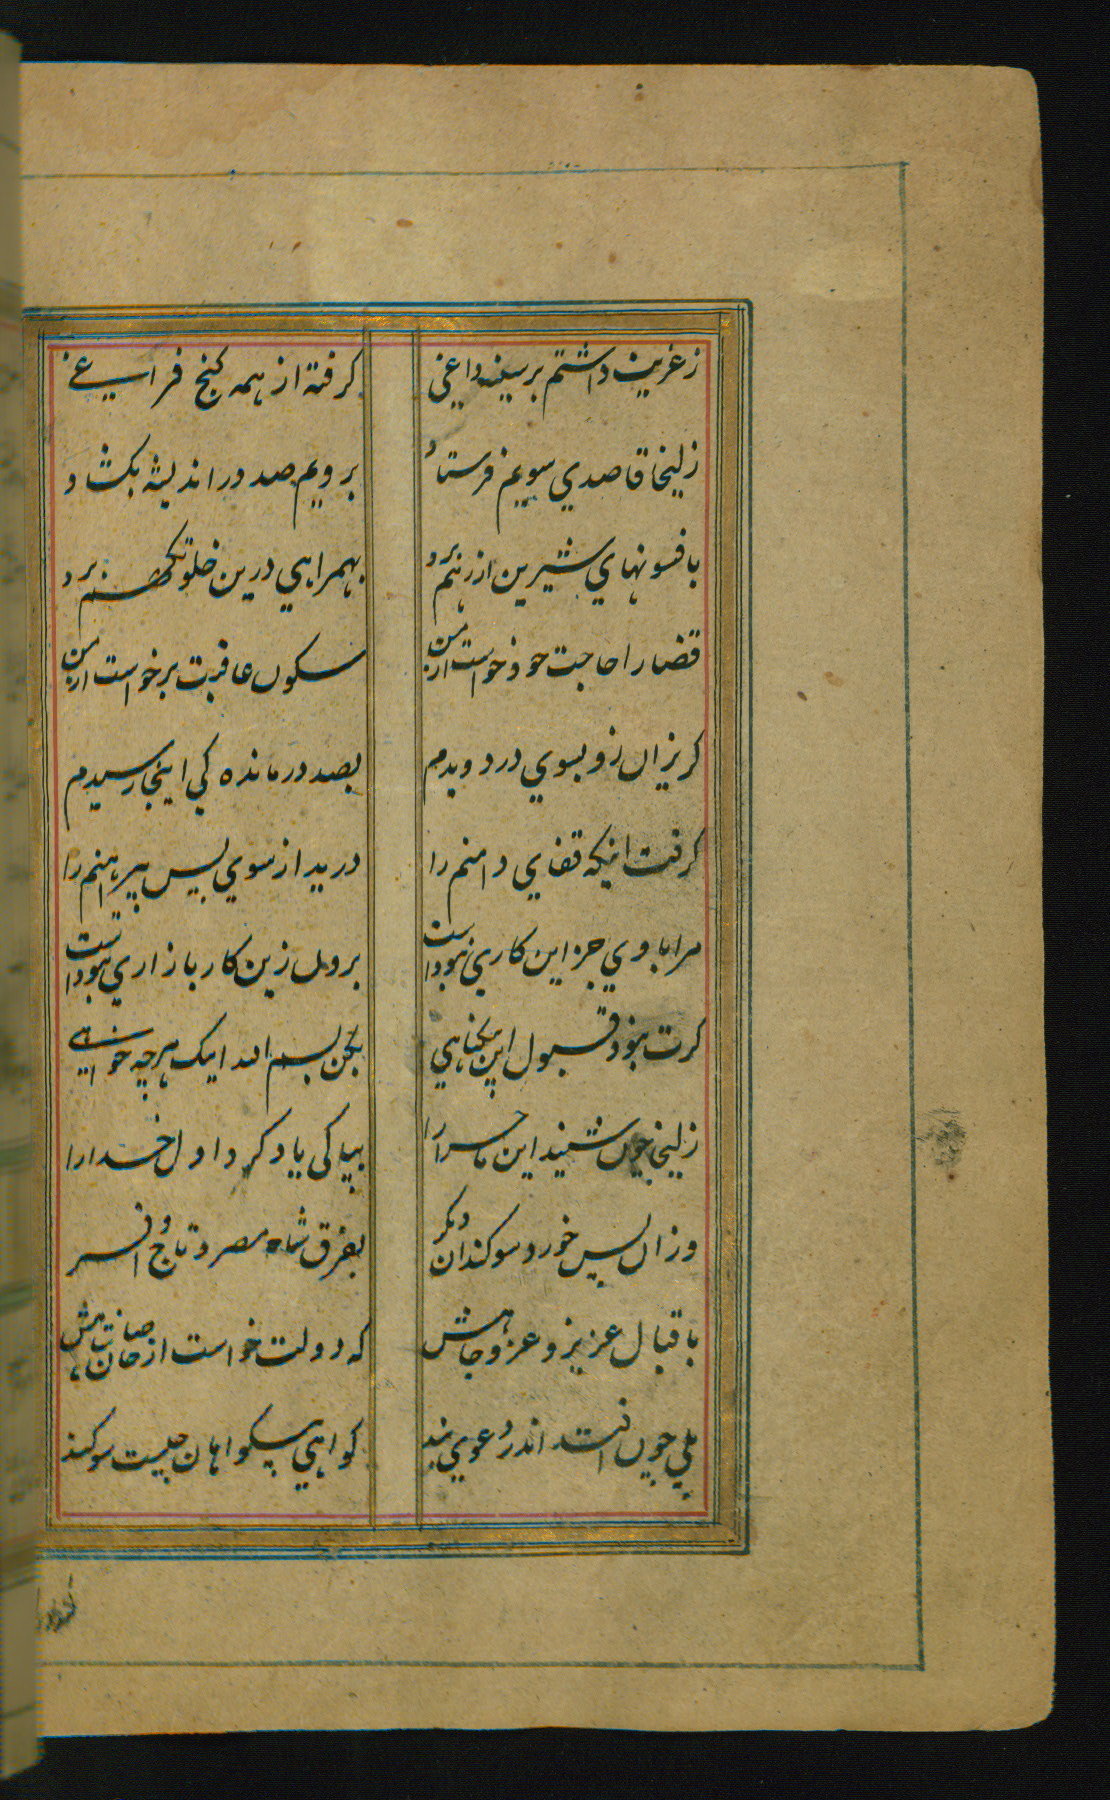 ز غربت داشتم بر سینه داغی گرفته از همه کنج فراغی
زلیخا قاصدی سویم فرستاد برویم صد در اندیشه بکشاد
بافسونهای شیرین از رهم برد بهمراهی درین خلوتگهم برد
قضارا حاجت خود خواست از من سکون عافیت برخواست از من
گریزان زو بسوی در دویدم بصد درمانده کی اینجا رسیدم
گرفت اینکه قفای دامنم را درید از سوی پس پیراهنم را
مرا با وی جز این کاری نبوداست برون زین کار بازاری نبوداست
گرت نبود قبول این بیگناهی بکن بسم الله اینک هرچه خواهی
زلیخا چون شنید این ماجرا را بپاکی یاد کرد اول خدارا
وزان پس خورد سوگندان دیگر بفرق شاه مصر و تاج و افسر
باقبال عزیز و عز و جاهش که دولت خواست از خاصان شاهش
بلی چون افتد اندر دعوی بند گواهی بیگواهان چیست سوگند